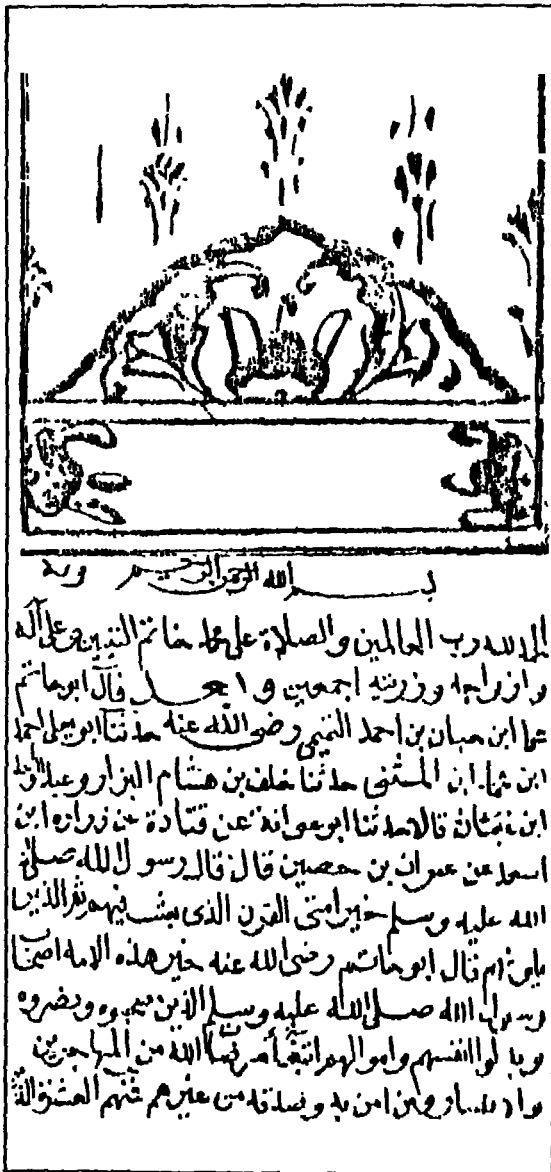 بسم الله الرحمن الرحيم وبه
الحمد لله رب العالمين والصلاة على محمد خاتم النبيين وعلى آله
وازواجه وذريته اجمعين وبعد قال ابو حاتم
محمد ابن حبان بن احمد التميمي رضى الله عنه حدثنا ابو يعلى احمد
ابن على ابن المثنى حدثنا خلف بن هشام البزار وعبد الواحد
ابن غياث قالا حدثنا ابو عوانة عن قتادة عن زراره ابن
عن عمران بن حصين قال قال رسول الله صلى
الله عليه وسلم خير امتى القرن الذى بعثت فيهم ثم الذين
يلونهم قال ابو حاتم رضى الله عنه خير هذه الامه اصحاب
رسول الله صلى الله عليه وسلم الذين صحبوه ونصروه
وبذلوا انفسهم واموالهم الله من المهاجرين
والانصار ومن امن به وصدقه من غيرهم منهم العشرة